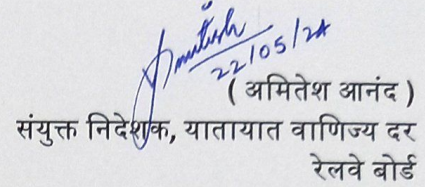 Amitesh
22/05/24
( अमितेश आनंद )
संयुक्त निदेशक, यातायात वाणिज्य दर
रेलवे बोर्ड